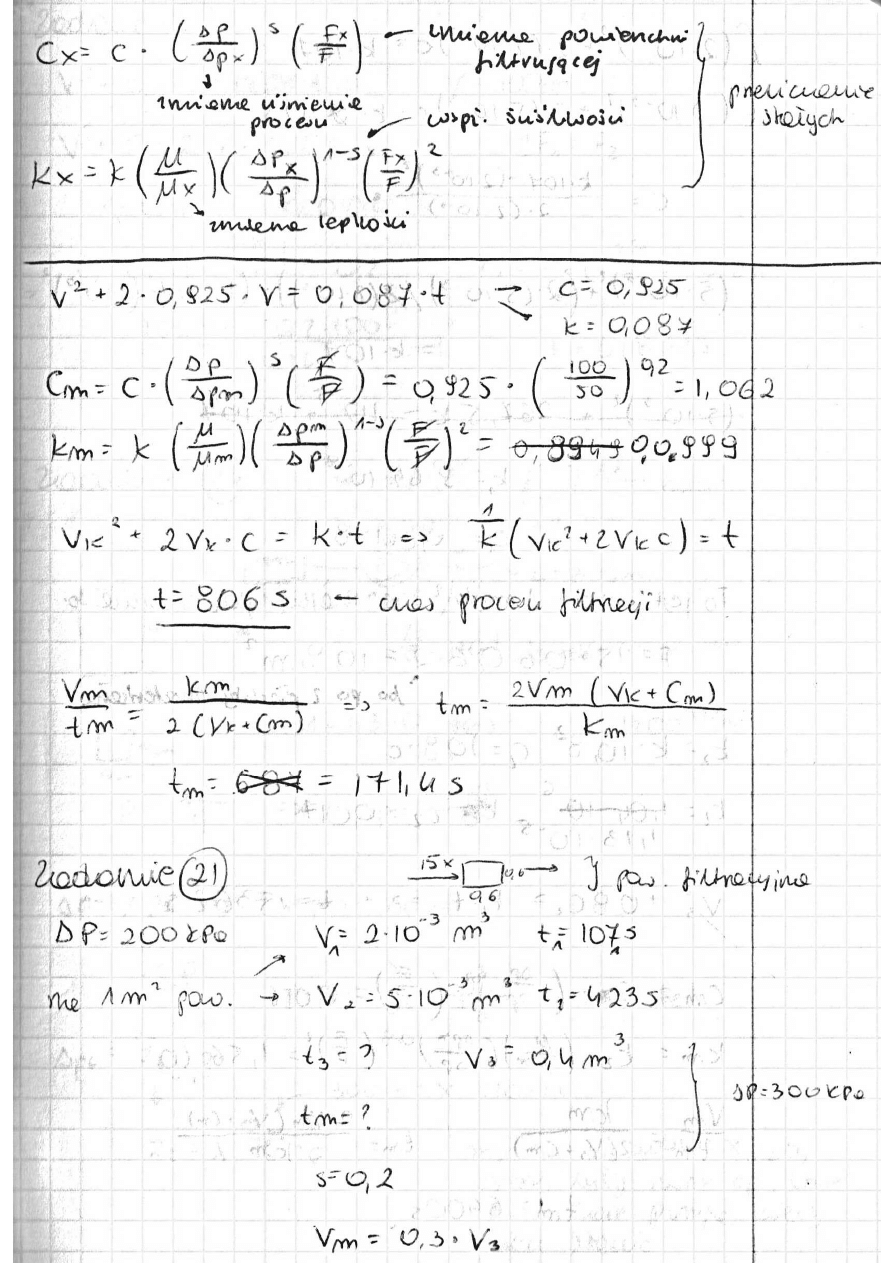 Cx = C · (Δp/Δpx)^s (Fx/F) ← zmiana powierzchni
filtrującej
zmiana ciśnienia
procesu
wsp. ściśliwości
przeliczanie
stałych
kx = k (μ/μx) (Δpx/Δp)^1-s (Fx/F)^2
zmiana lepkości
V² + 2 · 0,925 · V = 0,087 · t → C = 0,925
k = 0,087
Cm = C · (Δp/Δpm)^s (F/F) = 0,925 · (100/50)^0,2 = 1,062
km = k (μ/μm) (Δpm/Δp)^1-s (F/F)^2 = 0,0999
Vk² + 2Vk · C = k · t => 1/k (Vk² + 2Vk C) = t
t = 806 s ← czas procesu filtracji
Vm/tm = km/2(Vk + Cm) => tm = 2Vm (Vk + Cm)/km
tm = 687 = 171,4 s
Zadanie 21
15x 0,6 0,6 → } pow. filtracyjna
ΔP = 200 kPa V₁ = 2·10⁻³ m³ t₁ = 107s
na 1m² pow. → V₂ = 5·10⁻³ m³ t₂ = 423s
t₃ = ? V₃ = 0,4 m³
ΔP = 300 kPa
tm = ?
s = 0,2
Vm = 0,3 · V₃